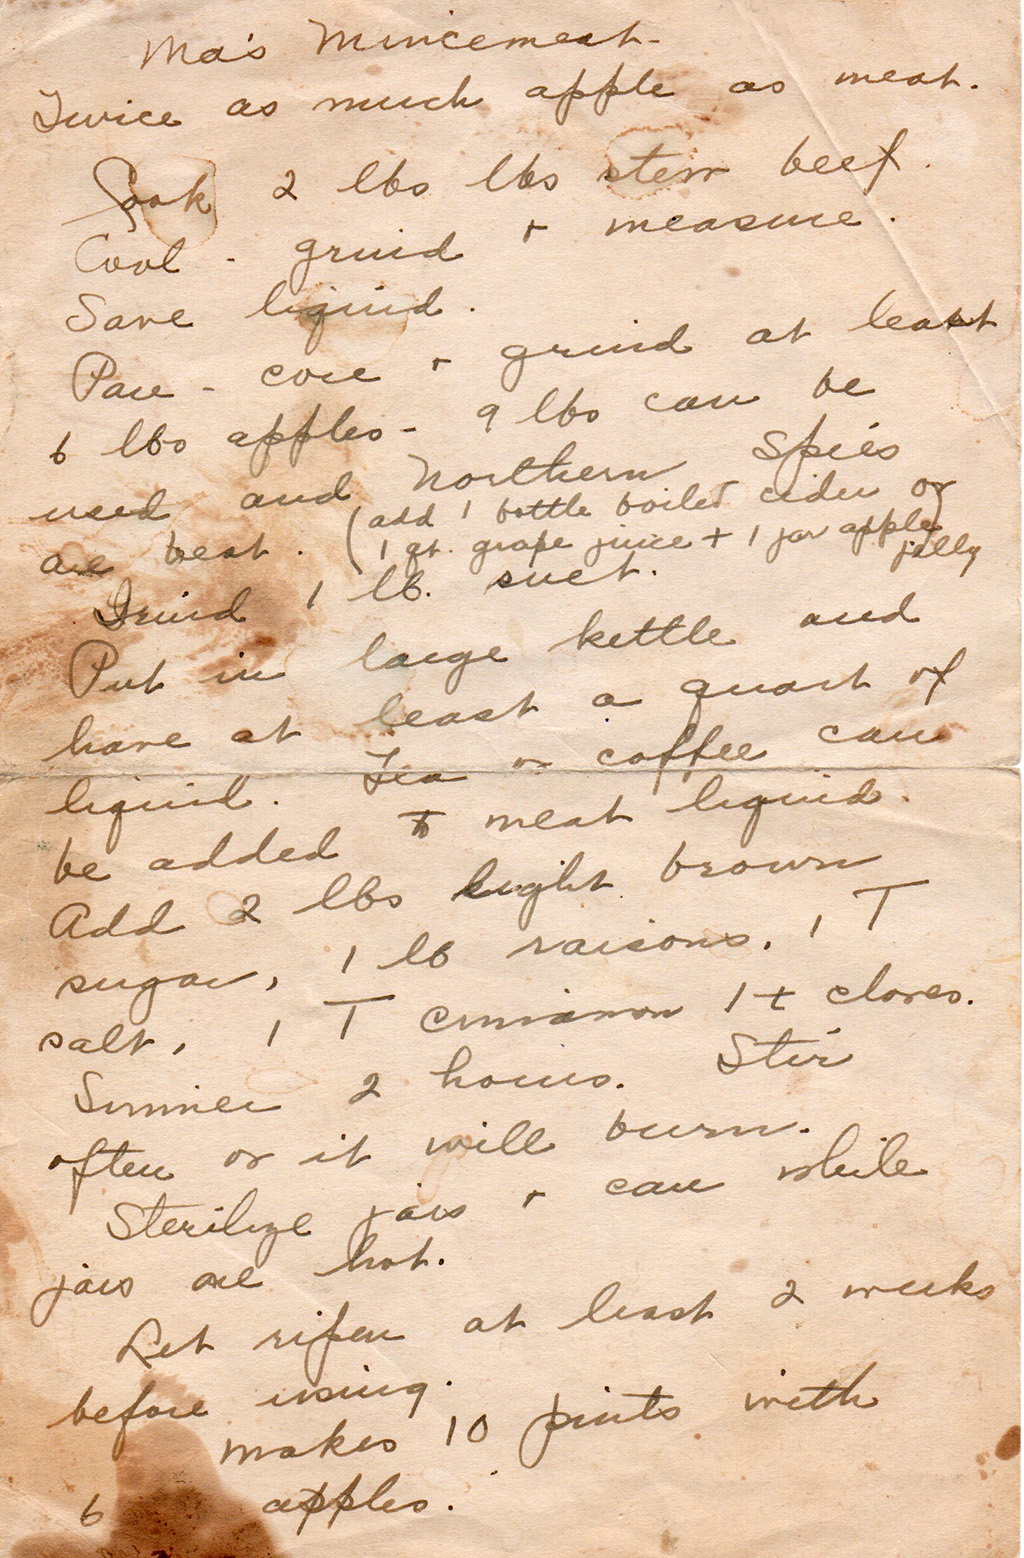 Ma's Mincemeat-
Twice as much apple as meat.
Cook 2 lbs lbs stew beef.
Cool - grind + measure.
Save liquid.
Pare - core + grind at least
6 lbs apples - 9 lbs can be
used and Northern Spies
are best. (add 1 bottle boiled cider or
1 qt. grape juice + 1 jar apple jelly)
Grind 1 lb. suet.
Put in large kettle and
have at least a quart of
liquid. Tea or coffee can
be added to meat liquid.
Add 2 lbs light brown
sugar, 1 lb raisons, 1 T
salt, 1 T cinnamon 1 t cloves.
Simmer 2 hours. Stir
often or it will burn.
Sterilize jars + can while
jars are hot.
Let ripen at least 2 weeks
before using.
Makes 10 pints with
6 apples.